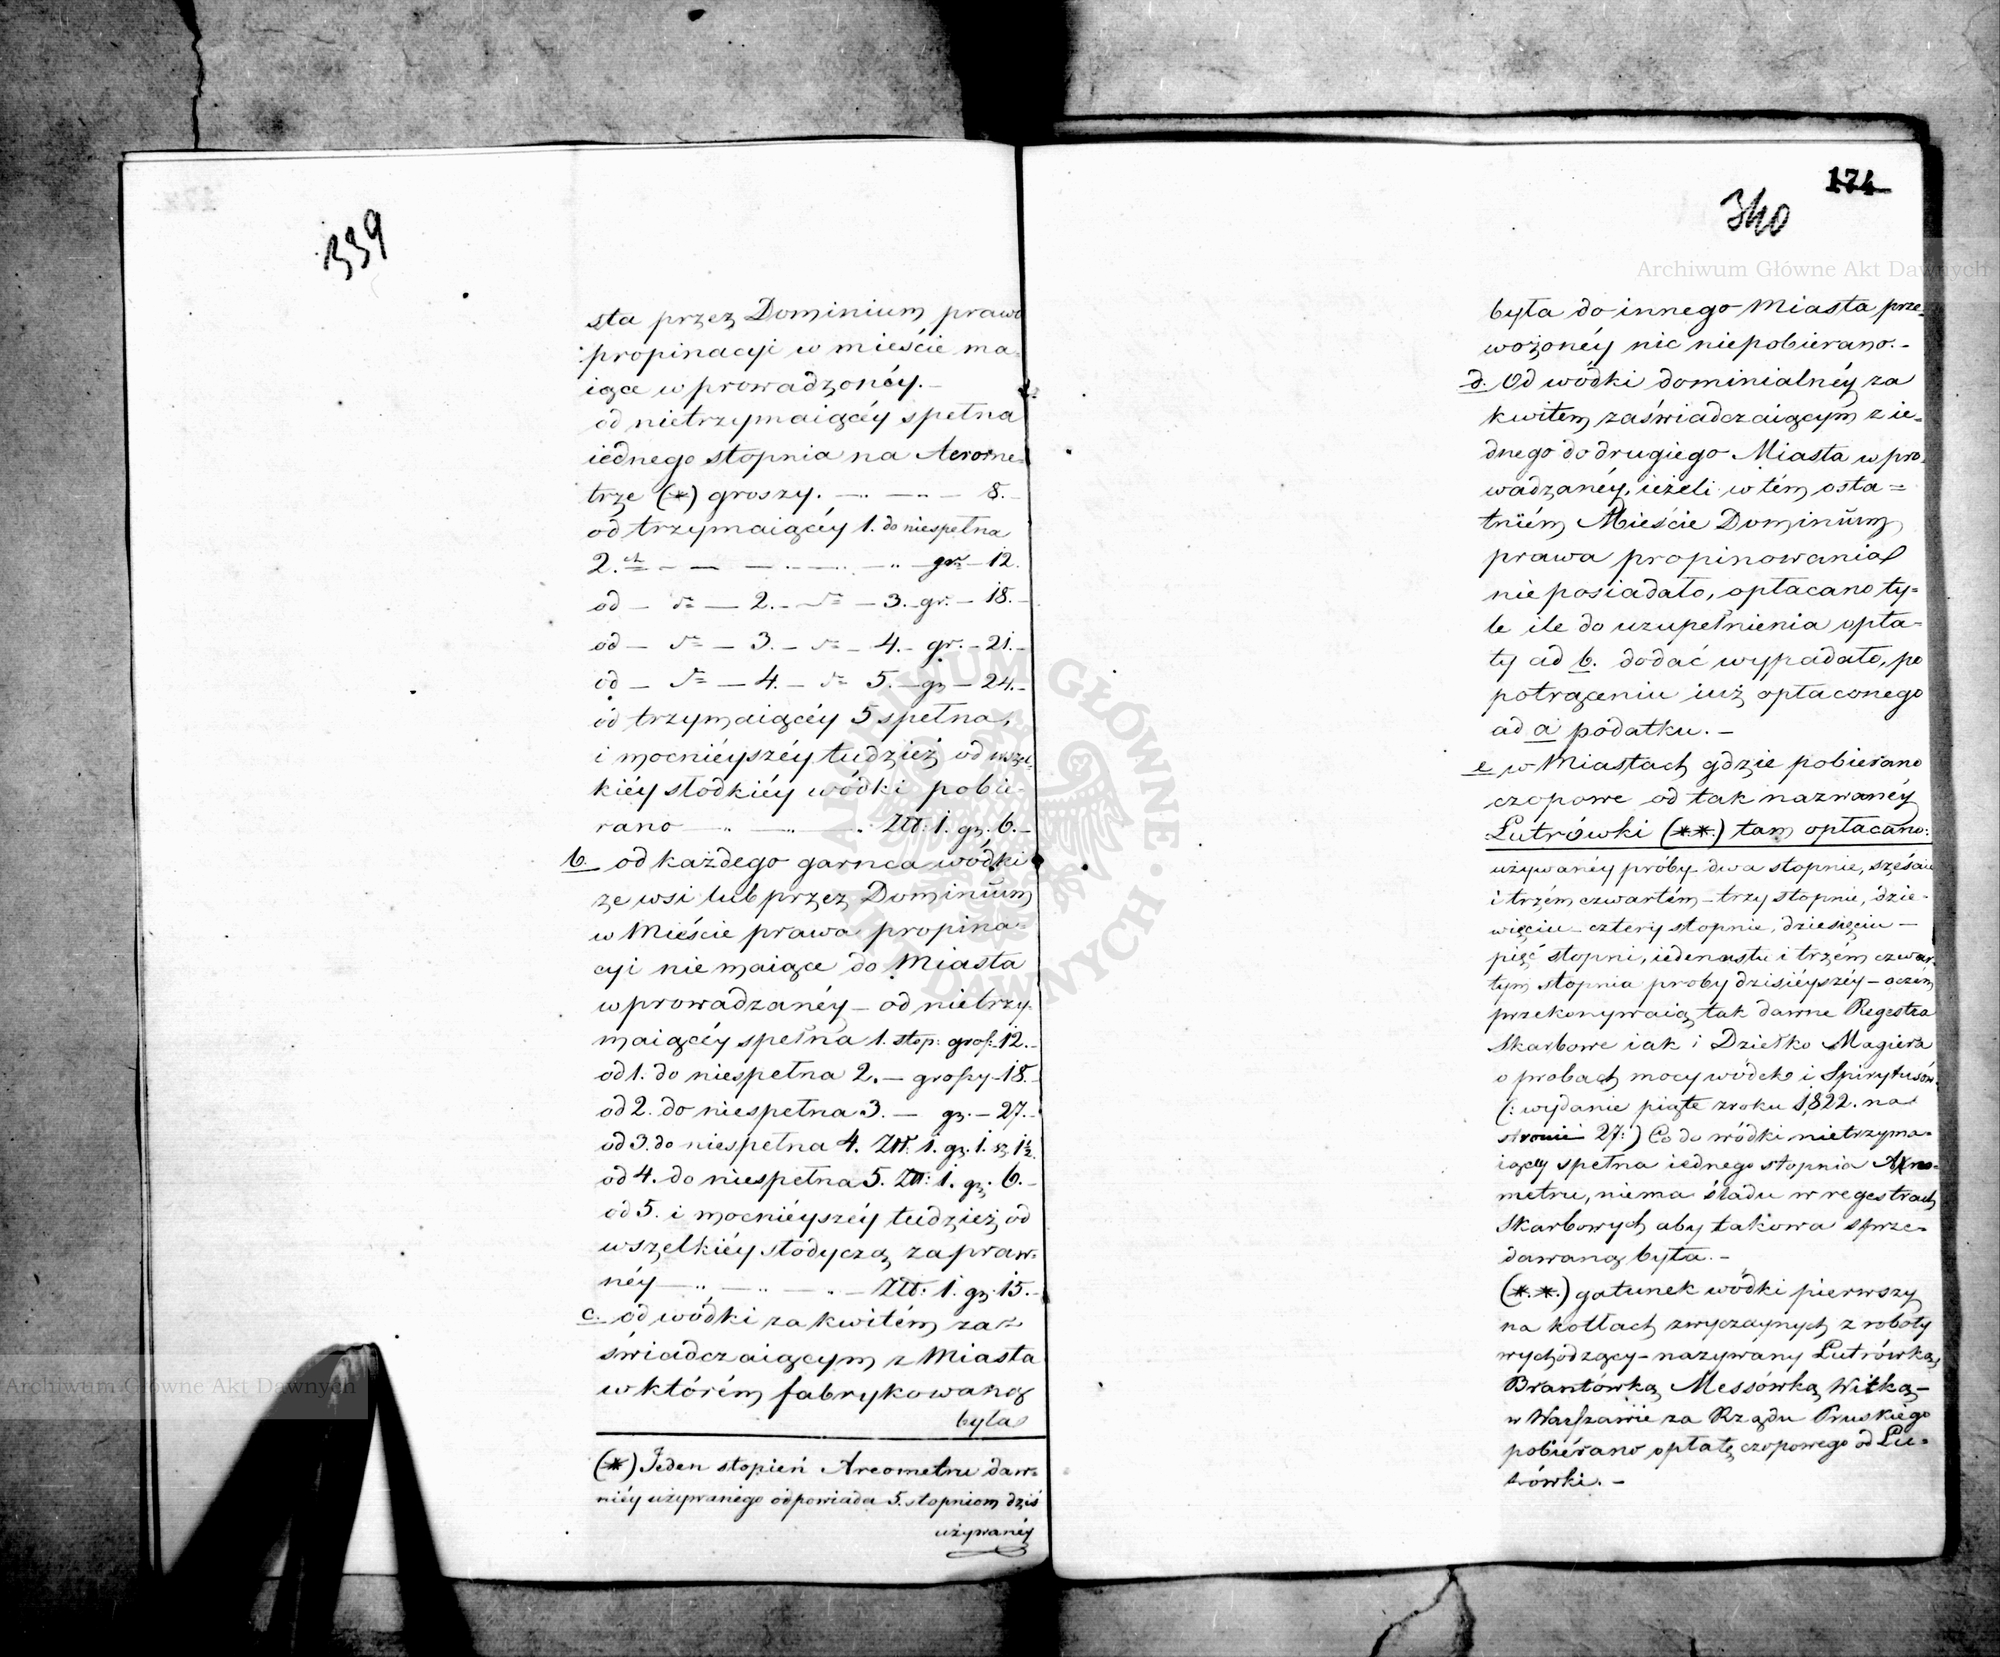 339
sta przez Dominium prawo
propinacyi w mieście ma-
iące wprowadzonéy.-
od nietrzymaiącéy spełna
iednego stopnia na Aerome-
trze (*) groszy. - .. - .. - 8.-
od trzymaiącéy 1. do niespełna
2.ch - - - .. - .. - gr. - 12.
od - dº - 2. - dº - 3. - gr. - 18.-
od - dº - 3. - dº - 4. - gr. - 21.-
od - dº - 4. - dº 5. - gr. - 24.-
od trzymaiącéy 5 spełna,
i mocniéyszéy tudzież od wszel-
kiéy słodkiéy wódki pobie-
rano - .. - .. - . Złł: 1. gr. 6.-
b. od każdego garnca wódki
ze wsi lub przez Dominium
w Mieście prawa propina-
cyi nie maiące do Miasta
wprowadzanéy - od nietrzy-
maiącéy spełna 1. stop: groß: 12.-
od 1. do niespełna 2. - großy - 18.-
od 2. do niespełna 3. - gr. - 27.-
od 3. do niespełna 4. Złł: 1. gr. 1. sz. 1½.
od 4. do niespełna 5. Złł: 1. gr. 6.-
od 5. i mocniéyszéy tudzież od
wszelkiéy słodyczą zapraw-
néy - .. - .. - .. - Złł: 1. gr. 15.-
c. od wódki za kwitém za-
świadczaiącym z Miasta
w którém fabrykowaną
była
(*) Jeden stopień Areometru daw-
niéy używanégo odpowiada 5. stopniom dziś
używanéy
174
340
była do innego Miasta prze-
wożonéy nic niepobierano.-
d. Od wódki dominialnéy za
kwitem zaświadczaiącym z ie-
dnego do drugiego Miasta wpro-
wadzanéy, ieżeli w tém osta=
tniém Mieście Dominium
prawa propinowania
nie posiadało, opłacano ty-
le ile do uzupełnienia opła-
ty ad b. dodać wypadało, po
potrąceniu iuż opłaconego
ad a podatku.-
e. w Miastach gdzie pobierano
czopowe od tak nazwanéy
Lutrówki (**.) tam opłacano:
używanéy próby dwa stopnie, sześciu
i trzém czwartém - trzy stopnie, dzie-
więciu - cztery stopnie, dziesięciu -
pięć stopni, iedenastu i trzém czwar-
tym stopnia proby dzisiéyszéy - o czém
przekonywaią tak dawne Regestra
Skarbowe iak i Dziełko Magiera
o probach mocy wódek i Spirytusów
(: wydanie piąte z roku 1,822. na
stronie 27:) Co do wódki nietrzyma-
iącey spełna iednego stopnia Areo-
metru, niema śladu w regestrach
Skarbowych aby takowa sprze-
dawaną była.-
(*.*.) gatunek wódki pierwszy
na kotłach zwyczaynych z roboty
wychodzący - nazywany Lutrówką,
Brantówką, Messówką, Witką -
w Warszawie za Rządu Pruskiego
pobiérano opłatę czopowego od Lu-
trówki.-
Archiwum Główne Akt Dawnych
Archiwum Główne Akt Dawnych
ARCHIWUM GŁÓWNE AKT DAWNYCH